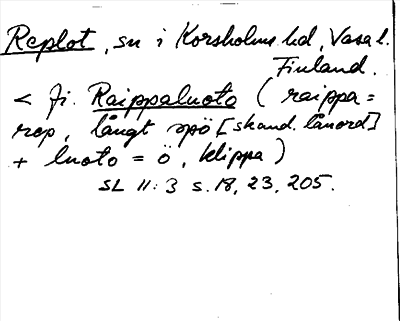 Replot, sn i Korsholms hd, Vasa l.
Finland.
< fi. Raippaluoto (raippa =
rep, långt spö [skand. lånord]
+ luoto = ö, klippa)
SL II:3 s.18, 23, 205.